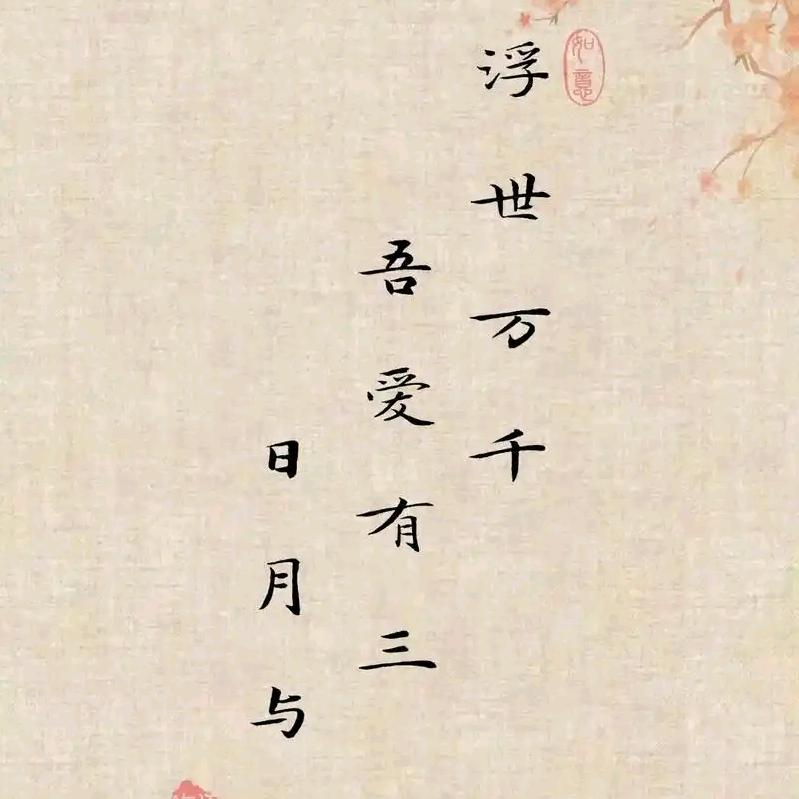 浮世万千
吾爱有三
日月与
如意